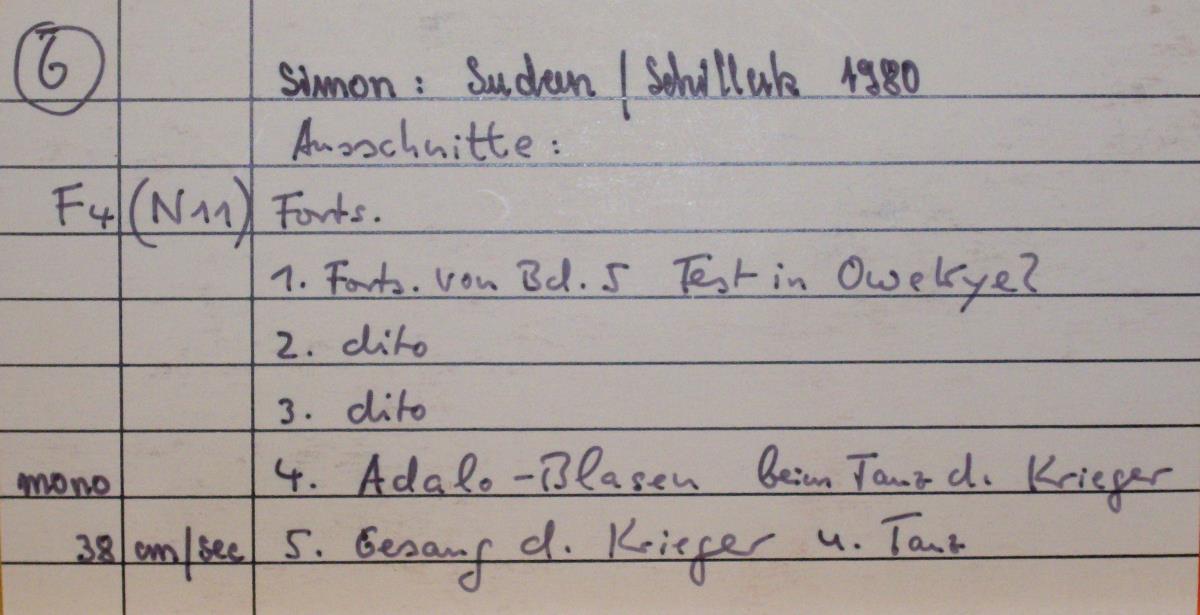 6 Simon: Sudan / Schilluk 1980
Ausschnitte:
F4 (N11) Forts.
1. Forts. von Bd. 5 Test in Owekye?
2. dito
3. dito
mono 4. Adalo-Blasen beim Tanz d. Krieger
38 cm/sec 5. Gesang d. Krieger u. Tanz